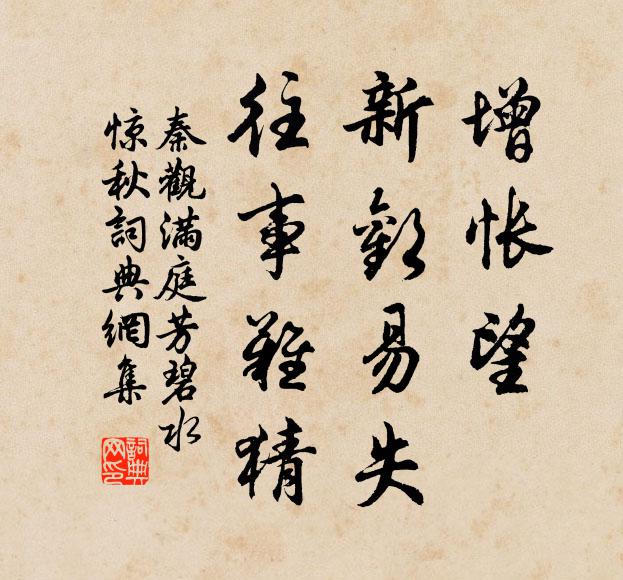 增悵望
新歡易失
往事難猜
秦觀滿庭芳碧水
惊秋詞典網集
詞典网印